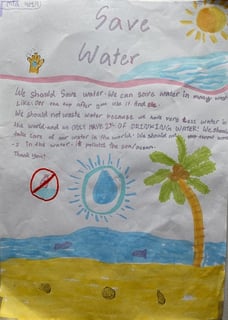 Save
Water
We should Save water. We can save water in many ways
Like: off the tap after you use it and etc.
We should not waste water because we have very less water in
the world and we ONLY HAVE 2% OF DRINKING WATER! We should
take care of our water in the world. We should not
-s in the water. it pollutes the sea/ocean.
Thank you!